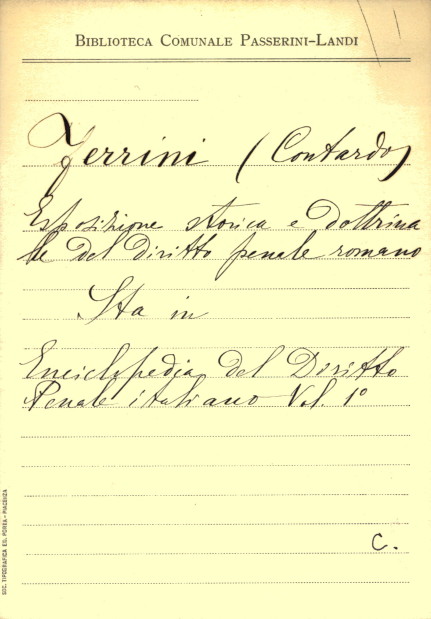 BIBLIOTECA COMUNALE PASSERINI-LANDI
Ferrini (Contardo)
Esposizione storica e dottrina
le del diritto penale romano
Sta in
Enciclopedia del Diritto
Penale italiano Vol. 1º
C.
SOC. TIPOGRAFICA ED. PORTA - PIACENZA